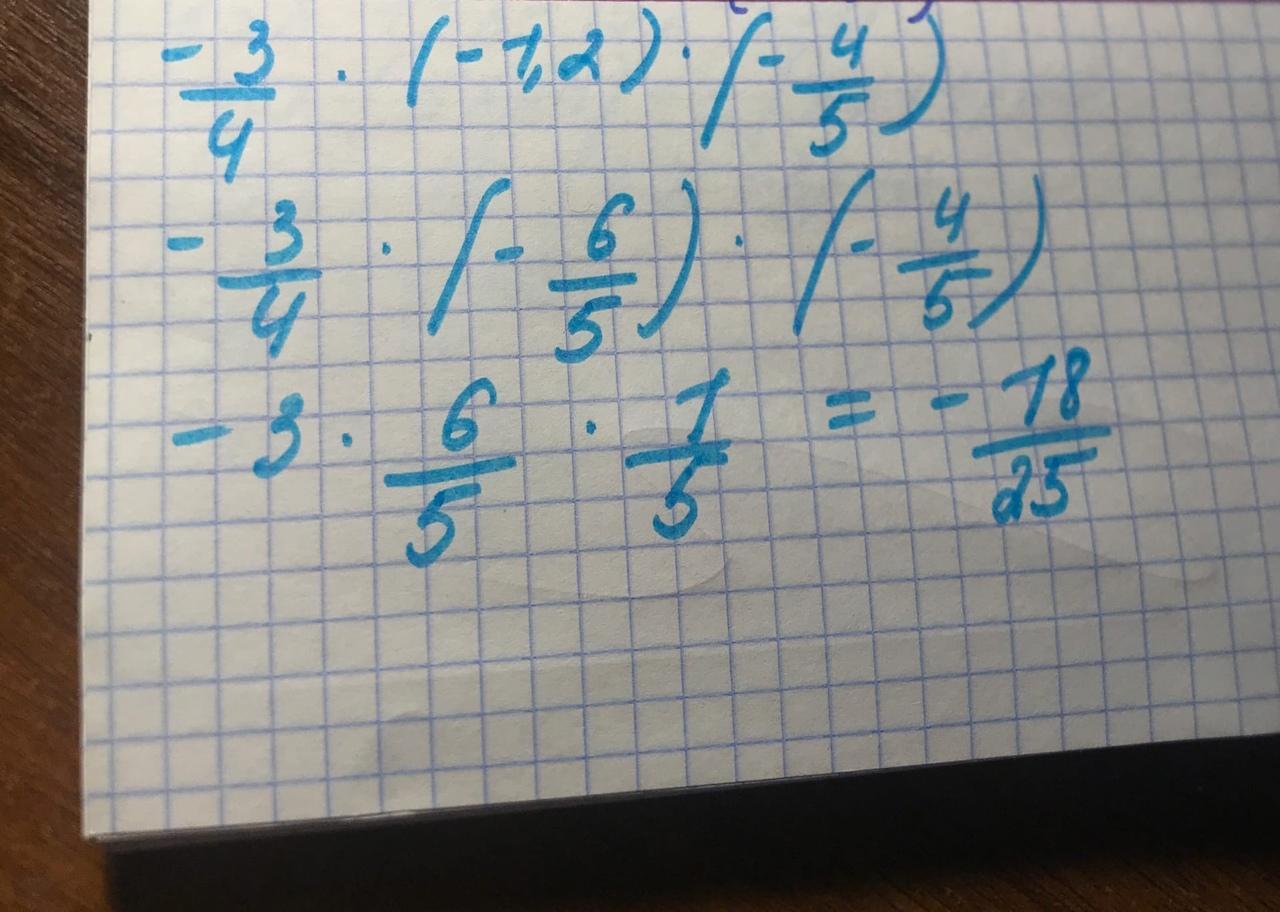 -3/4 · (-1,2) · (-4/5)
-3/4 · (-6/5) · (-4/5)
-3 · 6/5 · 1/5 = -18/25